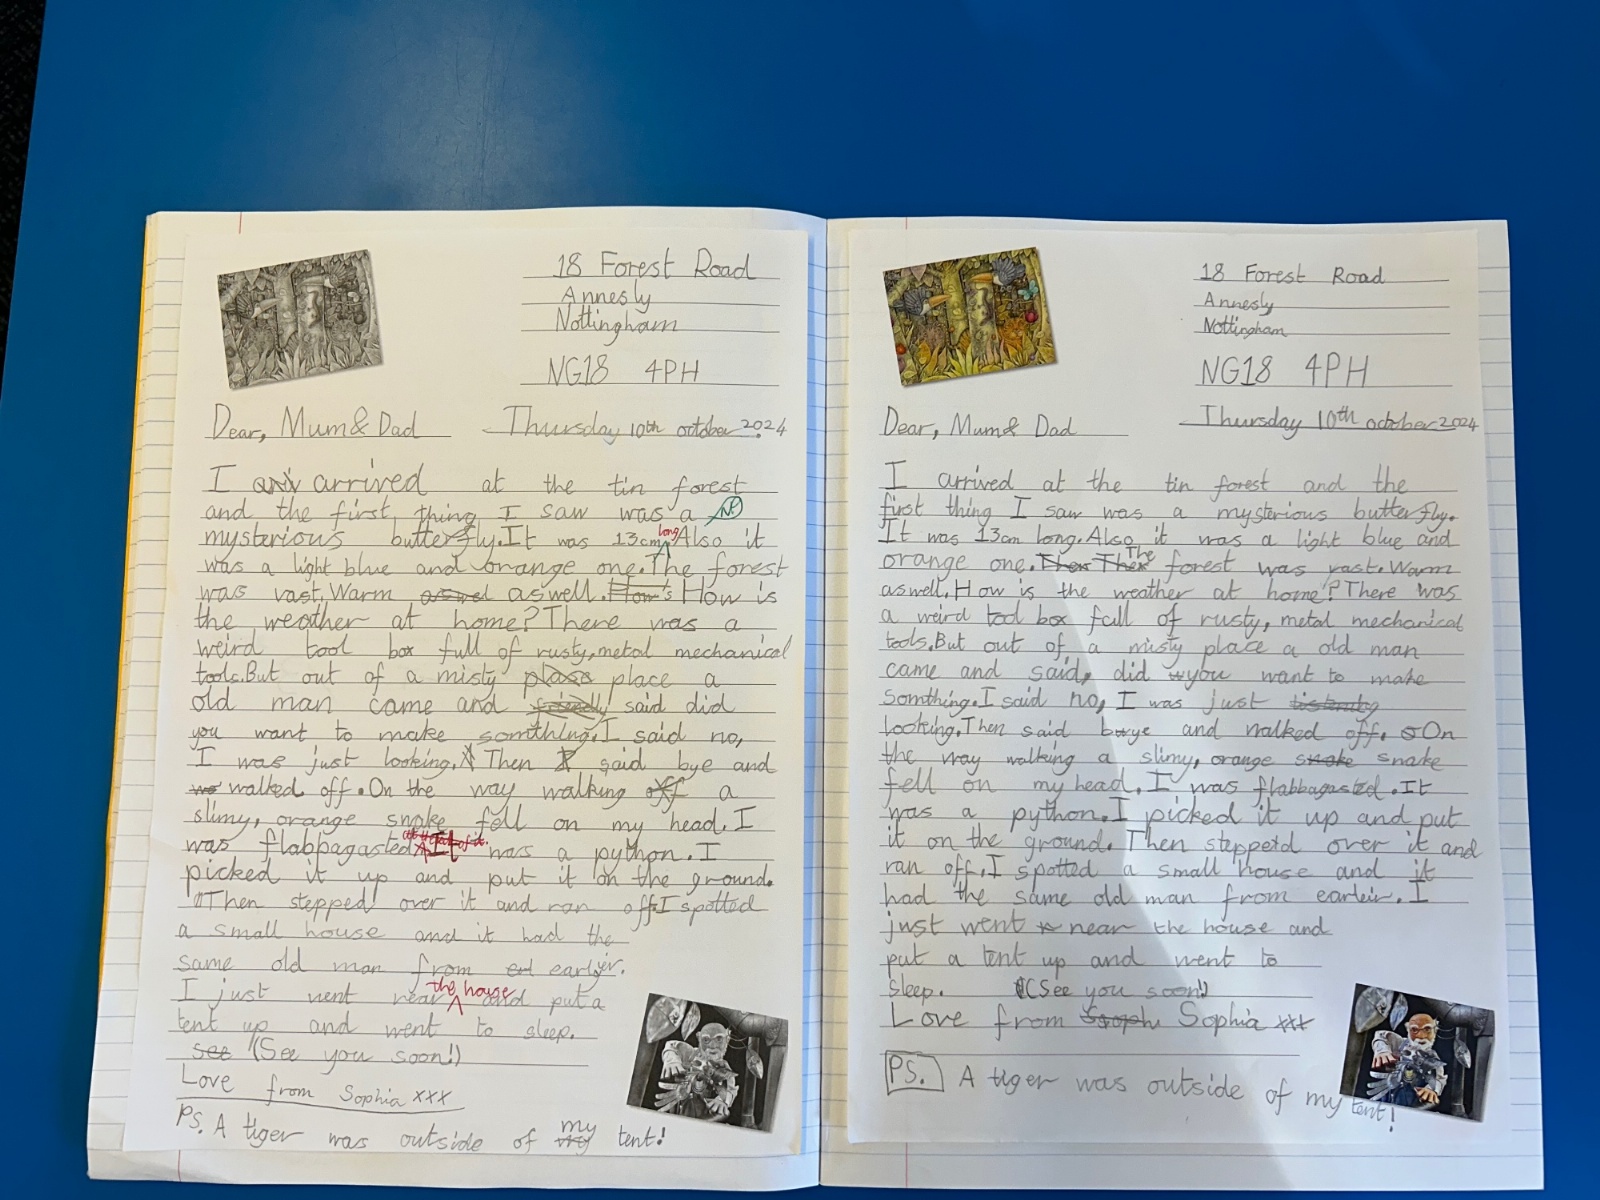 18 Forest Road
Annesly
Nottingham
NG18 4PH
Dear, Mum & Dad
Thursday 10th october 2024
I arrived at the tin forest
and the first thing I saw was a
mysterious butterfly. It was 13cm long Also it
was a light blue and orange one. The forest
was vast. Warm aswell. How is
the weather at home? There was a
weird tool box full of rusty, metal mechanical
tools. But out of a misty place a
old man came and said did
you want to make somthing. I said no,
I was just looking. Then said bye and
walked off. On the way walking a
slimy, orange snake fell on my head. I
was flabbagasted It was a python. I
picked it up and put it on the ground.
Then stepped over it and ran off. I spotted
a small house and it had the
same old man from earlyier.
I just went near the house and put a
tent up and went to sleep.
(See you soon!)
Love from Sophia xxx
PS. A tiger was outside of my tent!
18 Forest Road
Annesly
Nottingham
NG18 4PH
Dear, Mum & Dad
Thursday 10th october 2024
I arrived at the tin forest and the
first thing I saw was a mysterious butterfly.
It was 13cm long. Also it was a light blue and
orange one. The forest was vast. Warm
aswell. How is the weather at home? There was
a weird tool box full of rusty, metal mechanical
tools. But out of a misty place a old man
came and said, did you want to make
somthing. I said no, I was just
looking. Then said bye and walked off. On
the way walking a slimy, orange snake
fell on my head. I was flabbagasted. It
was a python. I picked it up and put
it on the ground. Then stepped over it and
ran off. I spotted a small house and it
had the same old man from earleir. I
just went near the house and
put a tent up and went to
sleep. (See you soon!)
Love from Sophia xxx
PS. A tiger was outside of my tent!